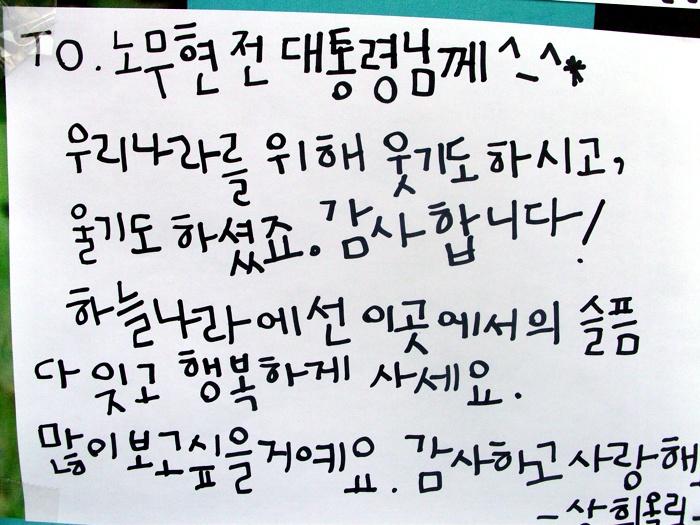 TO. 노무현 전 대통령님께 ^_^*
우리나라를 위해 웃기도 하시고,
울기도 하셨죠. 감사합니다!
하늘나라에선 이곳에서의 슬픔
다 잊고 행복하게 사세요.
많이 보고싶을거예요. 감사하고 사랑해